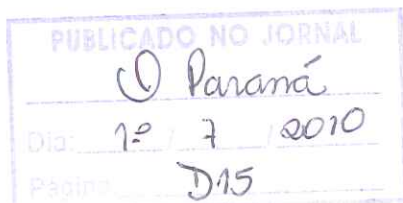 PUBLICADO NO JORNAL
O Paraná
Dia: 1º / 7 / 2010
Página D15